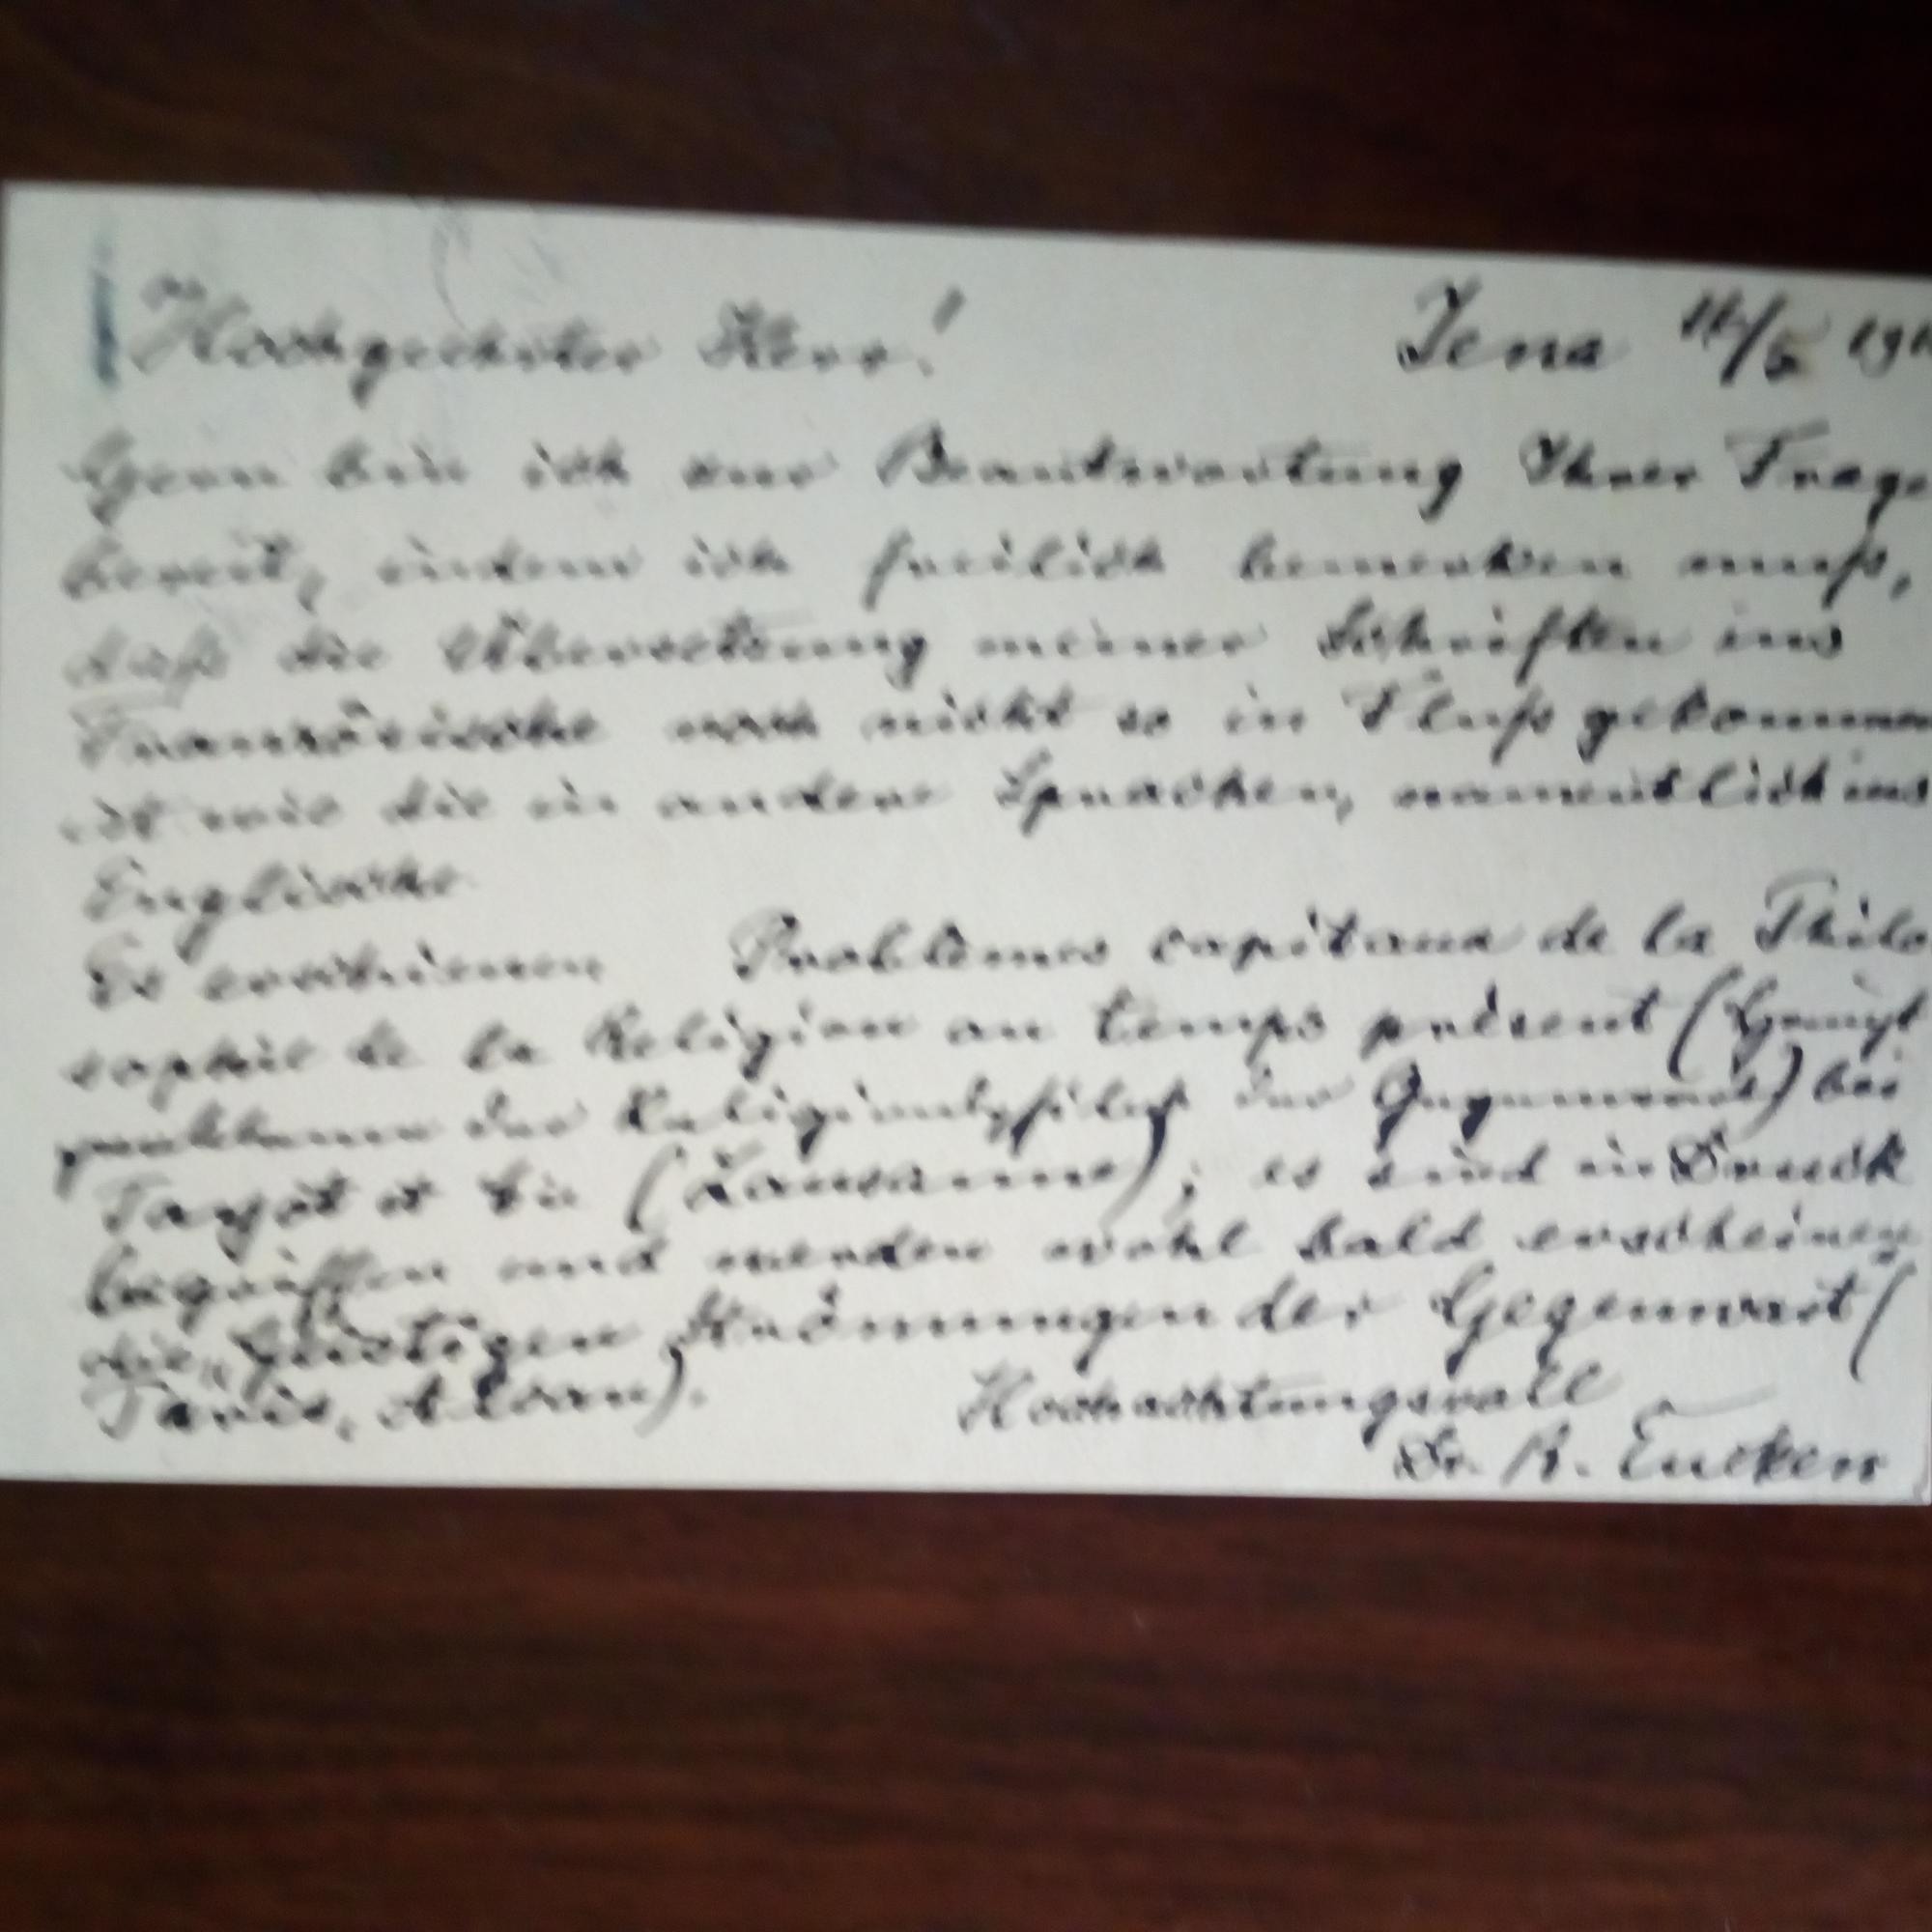 Hochgeehrter Herr! Jena 14/5 191
Gern bin ich zur Beantwortung Ihrer Frage
bereit, indem ich freilich bemerken muß,
daß die Übersetzung meiner Schriften ins
Französische noch nicht so in Fluß gekommen
ist wie die in andere Sprachen, namentlich ins
Englische
Es erschienen Problèmes capitaux de la Philo
sophie de la Religion au temps présent (Haupt
probleme der Religionsphilos. der Gegenwart) bei
et (Lausanne); es sind in Druck
begriffen und werden wohl bald erscheinen
die „Geistigen Strömungen der Gegenwart" (
Paris, Alcan). Hochachtungsvoll
Dr. R. Eucken